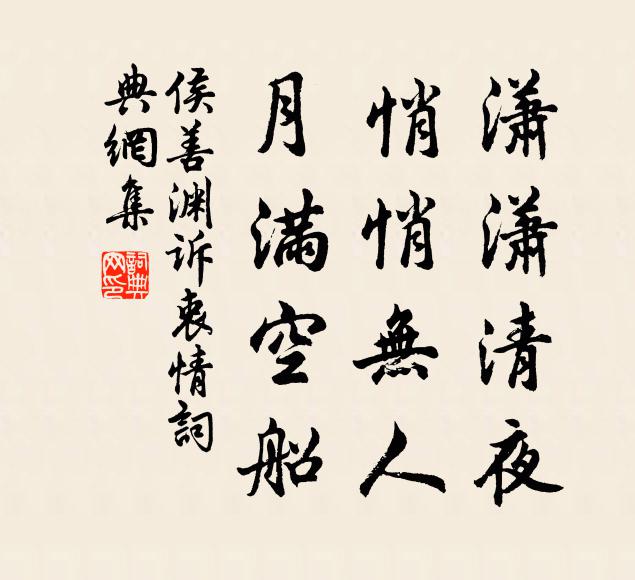 瀟瀟清夜
悄悄無人
月滿空船
侯善渊诉衷情詞
典網集
詞典网印